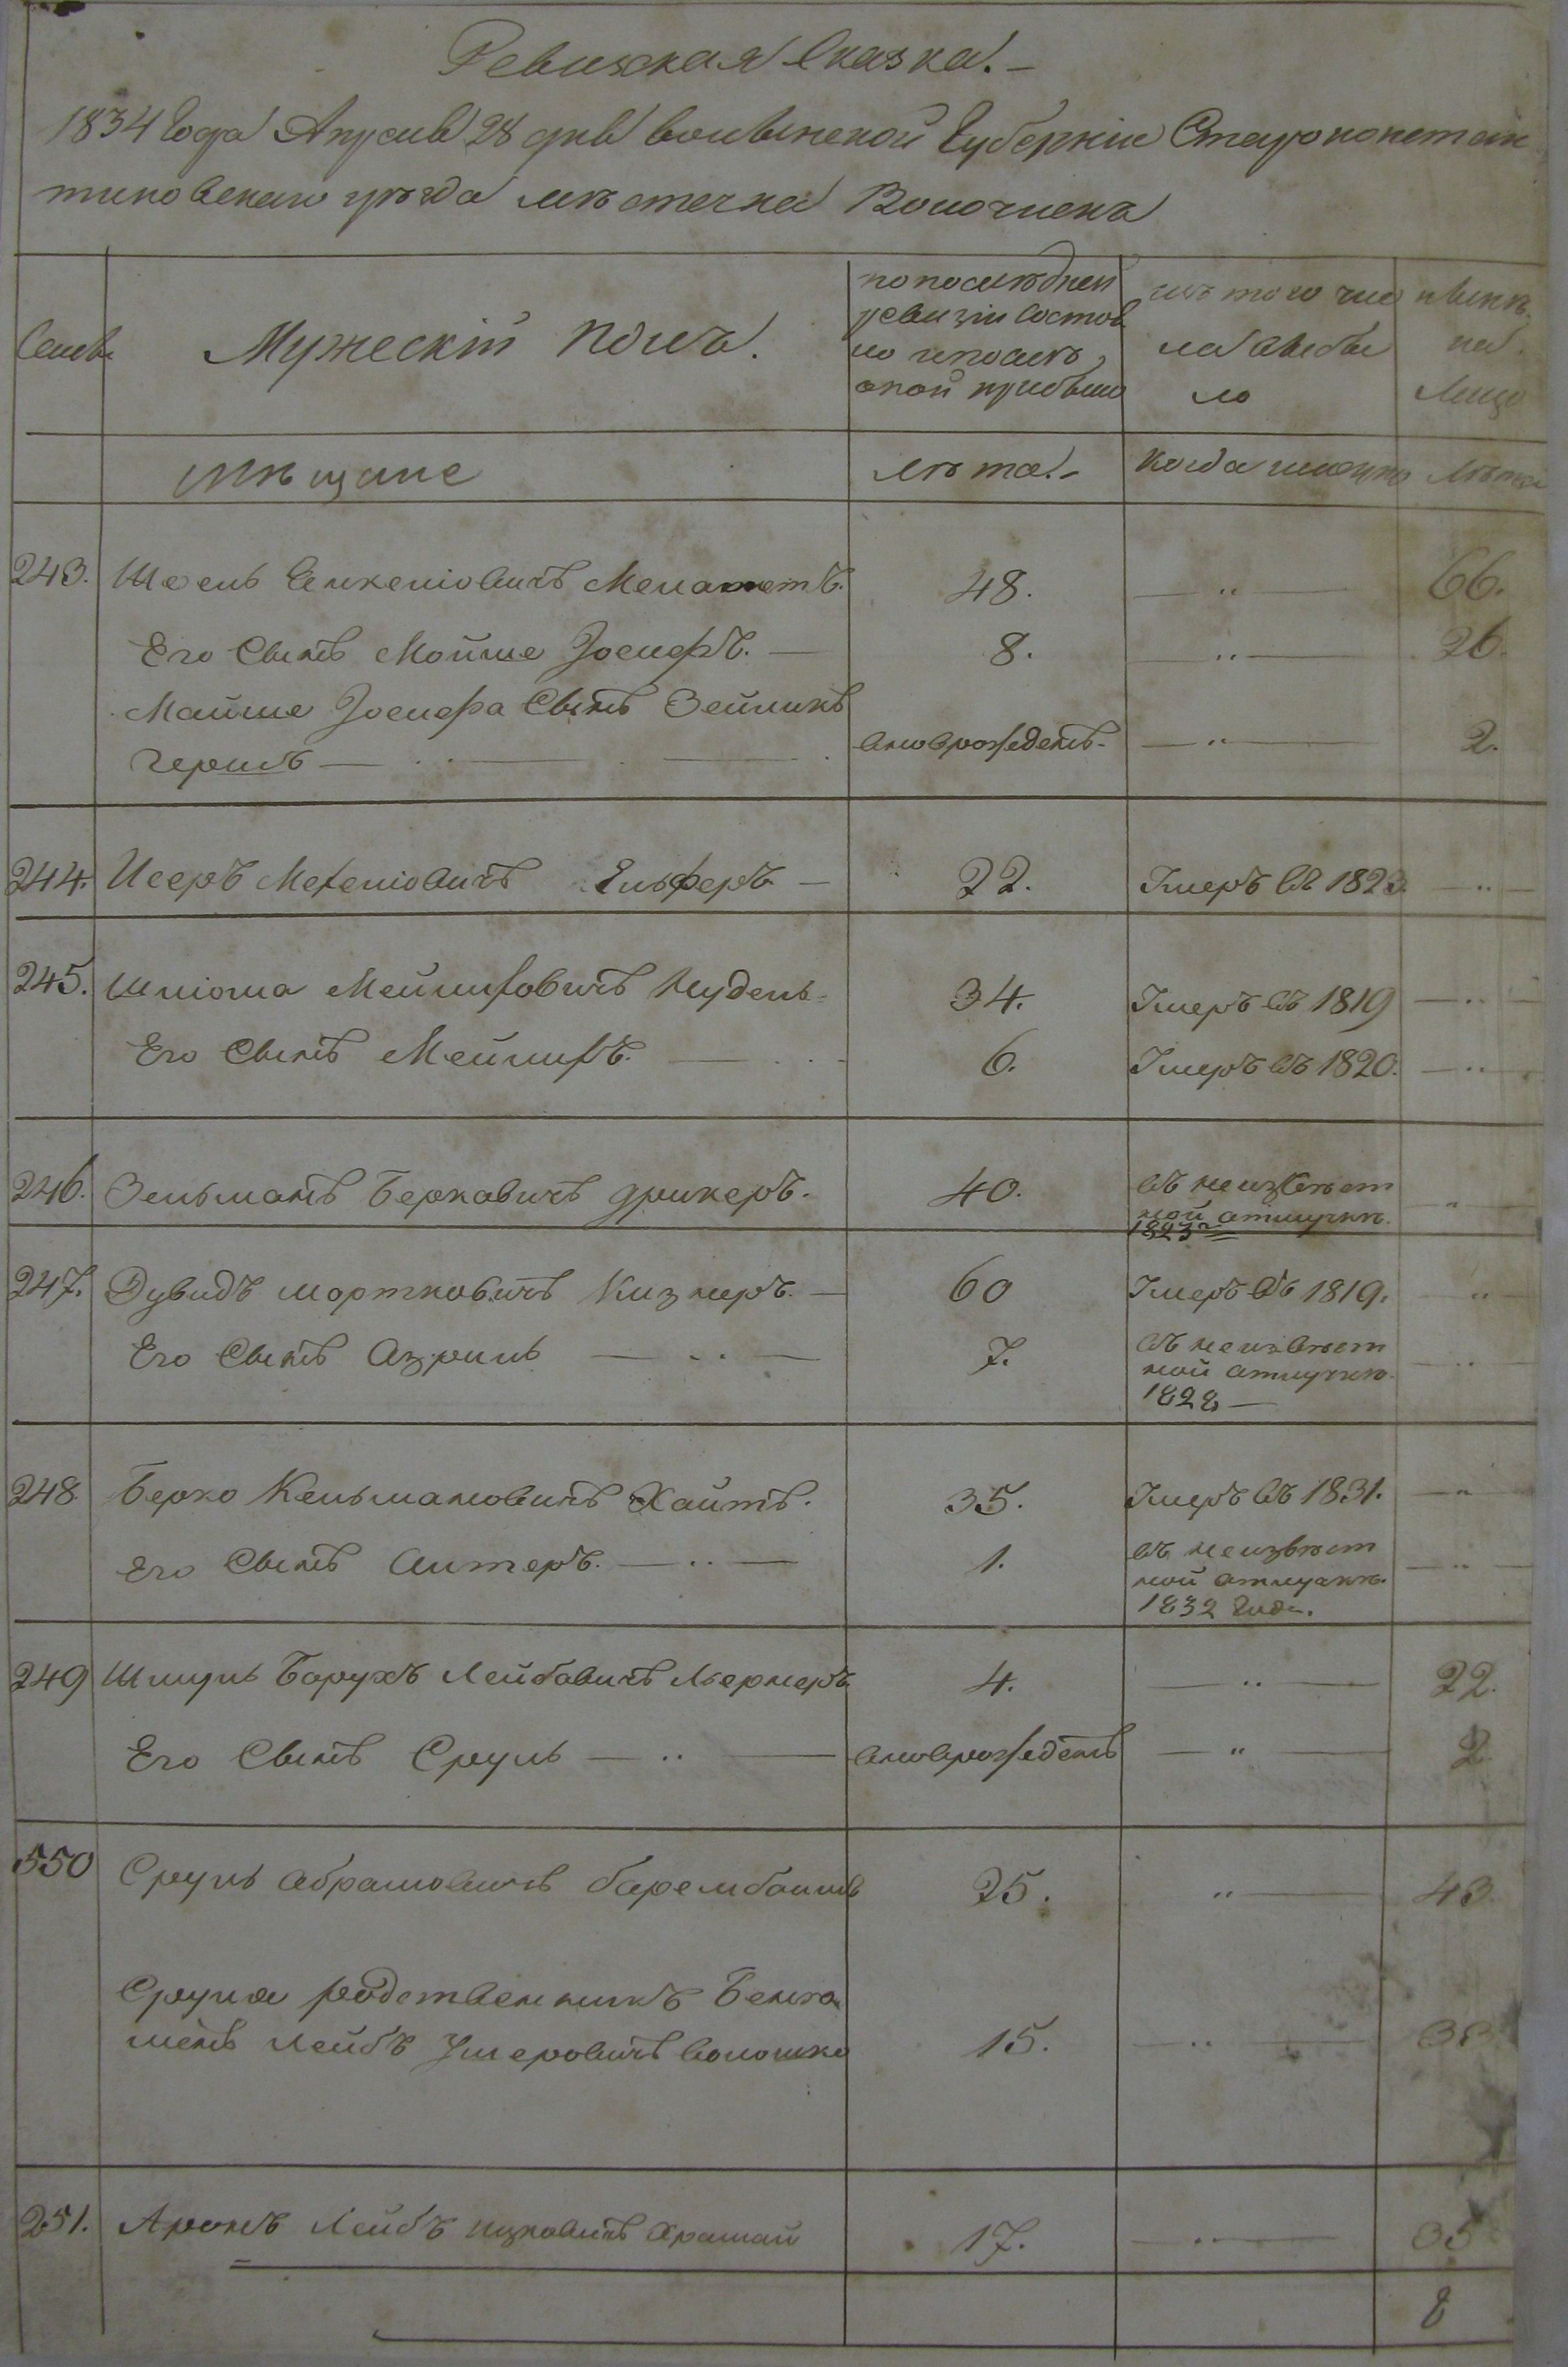 Ревижская Сказка. –
1834 Года Апреля 28 дня волынской Губерніи Староконстан
тиновскаго уѣзда мѣстечка Волочискъ
Семьи
Мужескій полъ.
по послѣдней
ревизіи состоя
ло и послѣ
оной прибыло
изъ того чис
ла выбы
ло
нынѣ
на
лицо
мѣщане
лѣта. –
когда имянно
лѣта
243. Мошковичъ 48. — " — 66.
Его Сынъ Мойше Іосифъ. — 8. — " — 26.
Мойше Іосифа Сынъ Зейликъ
Гершъ — новорожденъ — " — 2.
244. Исеръ — 22. Умеръ въ 1823. — " —
245. Шліома 34. Умеръ въ 1819 — " —
Его Сынъ — 6. Умеръ въ 1820. — " —
246. Зельманъ Берковичъ Дрикеръ. 40. въ неизвѣст
ной отлучкѣ. — " —
1823
247. Дувидъ Мортковичъ Кизнеръ. — 60 Умеръ въ 1819. — " —
Его Сынъ Азриль — " — 7. въ неизвѣст
ной отлучкѣ. — " —
1828 —
248. Берко Кельмановичъ Хаитъ. 35. Умеръ въ 1831. — " —
Его Сынъ Алтеръ. — " — 1. въ неизвѣст
ной отлучкѣ. — " —
1832 года.
249 Шмуль Борухъ Лейбовичъ Лернеръ 4. — " — 22.
Его Сынъ Сруль — " — новорожденъ — " — 2
550 Сруль Абрамовичъ Барембоимъ 25. " — 43.
Сруля родственникъ Бенья
менъ Лейбъ Ушеровичъ Волошко 15. — " — 33
251. Аронъ Лейбъ Ицковичъ 17. — " — 35
8